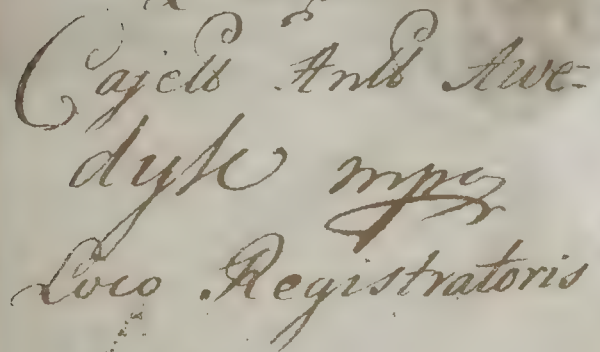 Cajett Antt Awe=
dyk mpa
Loco Registratoris